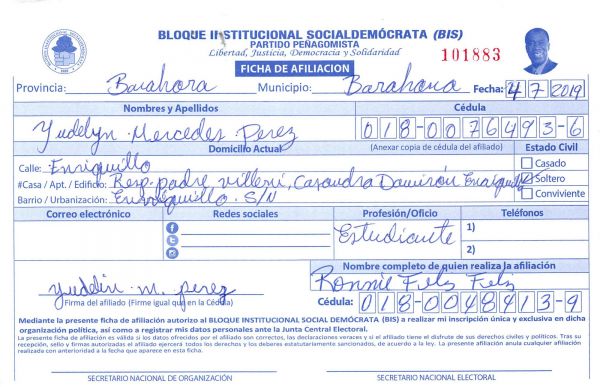 BLOQUE INSTITUCIONAL SOCIALDEMÓCRATA (BIS)
PARTIDO PEÑAGOMISTA
Libertad, Justicia, Democracia y Solidaridad
101883
FICHA DE AFILIACION
Provincia: Barahona Municipio: Barahona Fecha: 4/7/2019
Nombres y Apellidos Cédula
Yudelyn Mercedes Perez 018-0076493-6
Domicilio Actual (Anexar copia de cédula del afiliado) Estado Civil
Calle: Enriquillo Casado
#Casa / Apt. / Edificio: Resp. padre villeri, Casandra Damirón Enriquillo Soltero
Barrio / Urbanización: Enriquillo S/N Conviviente
Correo electrónico Redes sociales Profesión/Oficio Teléfonos
Estudiante 1)
2)
Nombre completo de quien realiza la afiliación
yudelin m. perez Ronnie Feliz Feliz
Firma del afiliado (Firme igual que en la Cédula) Cédula: 018-0048413-9
Mediante la presente ficha de afiliación autorizo al BLOQUE INSTITUCIONAL SOCIAL DEMÓCRATA (BIS) a realizar mi inscripción única y exclusiva en dicha
organización política, así como a registrar mis datos personales ante la Junta Central Electoral.
La presente ficha de afiliación es válida si los datos ofrecidos por el afiliado son correctos, las declaraciones veraces y si el afiliado tiene el disfrute de sus derechos civiles y políticos. Tras su
recepción, sello y firmas autorizadas el afiliado ejercerá todos los derechos y los deberes estatutariamente sancionados, de acuerdo a la ley. La presente afiliación anula cualquier afiliación
realizada con anterioridad a la fecha que aparece en esta ficha.
SECRETARIO NACIONAL DE ORGANIZACIÓN SECRETARIO NACIONAL ELECTORAL